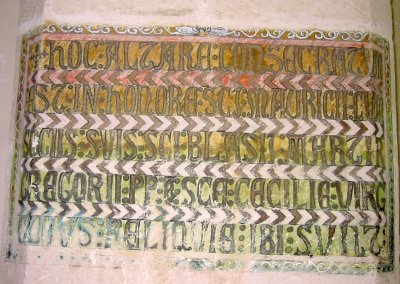 + HOC : ALTARE : CONSECRATV
EST : IN : HONORE : SCI : MAURICII : CVM
SOCIIS : SVIS : SCI : BLASII : MARTI
GREGORII : PP : ESCA : CECILIE : VIRG
QVORVS : RELIQVIE : IBI : SVNT :